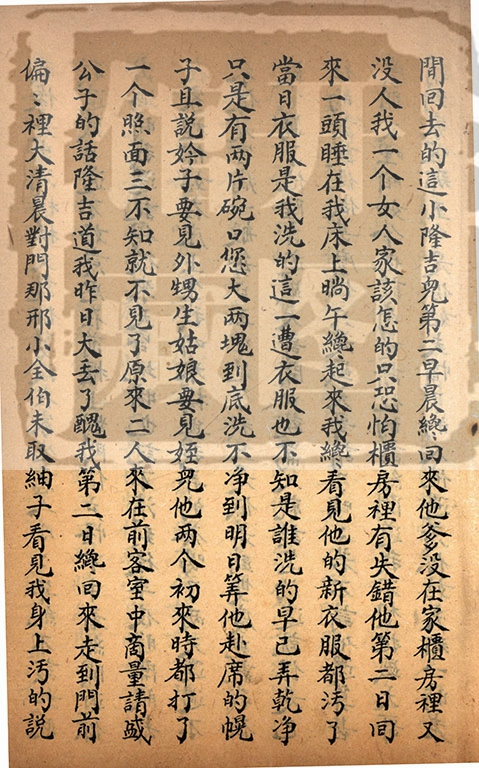 間回去的這小隆吉兒第二早晨纔回來他爹没在家櫃房裡又
没人我一个女人家該怎的只恐怕櫃房裡有失錯他第二日回
來一頭睡在我床上晌午纔起來我纔看見他的新衣服都污了
當日衣服是我洗的這一遭衣服也不知是誰洗的早已弄乾净
只是有两片碗口您大两塊到底洗不净到明日筭他赴席的幌
子且說妗子要見外甥生姑娘要見姪兒他两个初來時都打了
一个照面三不知就不見了原來二人來在前客室中商量請盛
公子的話隆吉道我昨日大丢了醜我第二日纔回來走到門前
偏〻裡大清晨對門那邢小全伯未取紬子看見我身上污的說